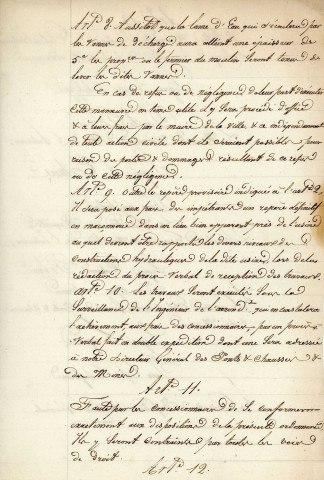 Art. 8. Aussitôt que la lame d'Eau qui s'écoulera par
les vannes de décharge aura atteint une épaisseur de
5.c les prop.res ou le fermier du moulin seront tenus de
lever les dites vannes.
En cas de refus ou de négligence de leur part d'exécuter
cette manœuvre en tems utile il y sera procédé d'office
& à leurs frais par le maire de la Ville, & ce indépendamment
de toute action civile dont ils seraient passibles pour
raison de pertes & dommages résultant de ce refus
ou de cette négligence.
Art. 9. Outre le repère provisoire indiqué à l'art. 2
Il sera posé aux frais des impétrants un repère définitif
en maçonnerie dans un lieu bien apparent près de l'usine
auquel devront être rapportés les divers niveaux des
constructions hydrauliques de la dite usine, lors de la
rédaction du procès Verbal de réception des travaux.
Art. 10. Les travaux seront exécutés sous la
Surveillance de l'Ingénieur de l'arrond.t qui en constatera
l'achèvement, aux frais des concessionnaires, par un procès-
Verbal fait en double expédition dont une sera adressée
à notre Directeur Général des Ponts & Chaussées &
des Mines.
Art. 11.
Faute par les concessionnaires de se conformer
exactement aux dispositions de la présente ordonnance
Ils y seront contraints par toutes les voies
de droit.
Art. 12.